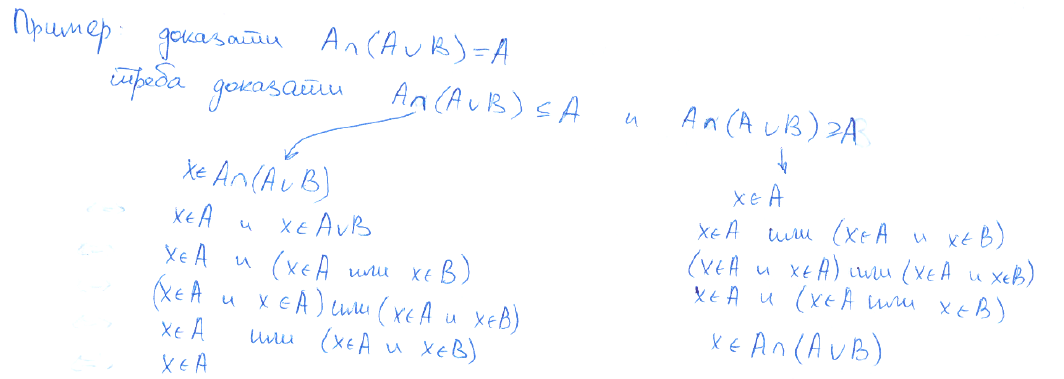 Пример: доказати A∩(A∪B)=A
треба доказати A∩(A∪B)⊆A и A∩(A∪B)⊇A
x∈A∩(A∪B)
x∈A и x∈A∪B
x∈A и (x∈A или x∈B)
(x∈A и x∈A) или (x∈A и x∈B)
x∈A или (x∈A и x∈B)
x∈A
x∈A
x∈A или (x∈A и x∈B)
(x∈A и x∈A) или (x∈A и x∈B)
x∈A и (x∈A или x∈B)
x∈A∩(A∪B)